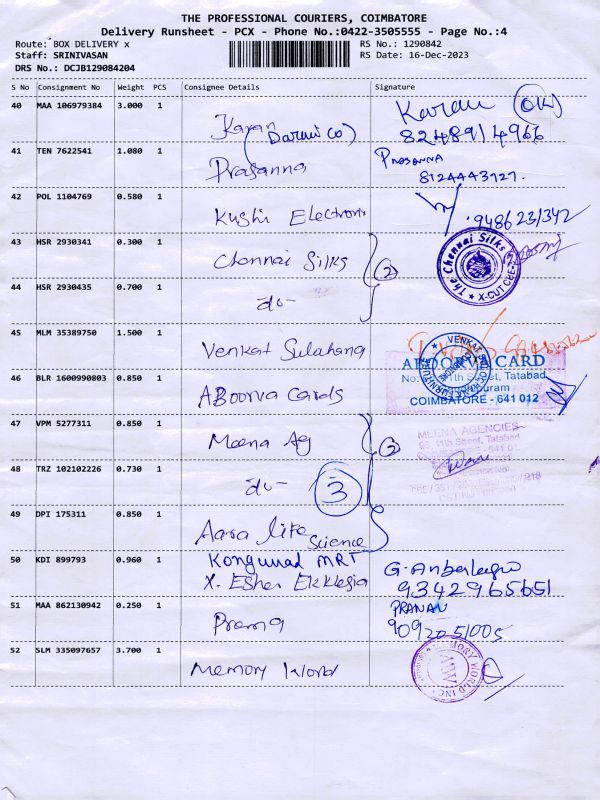 THE PROFESSIONAL COURIERS, COIMBATORE
Delivery Runsheet - PCX - Phone No.:0422-3505555 - Page No.:4
Route: BOX DELIVERY x
RS No.: 1290842
Staff: SRINIVASAN
RS Date: 16-Dec-2023
DRS No.: DCJB129084204
S No Consignment No Weight PCS Consignee Details Signature
40 MAA 106979384 3.000 1 Karan Karan OK
(Darmi Co) 8248914966
41 TEN 7622541 1.080 1 Prasanna Prasanna
8124443727.
42 POL 1104769 0.580 1 Kushi Electroni 9486231342
43 HSR 2930341 0.300 1 Chennai Silks (2) The Chennai Silks
X-CUT
44 HSR 2930435 0.700 1 do-
45 MLM 35389750 1.500 1 Venkat Sulahana VENKAT
46 BLR 1600990803 0.850 1 ABoorva Cards ABOORVA CARD
11th Street, Tatabad
COIMBATORE - 641 012
47 VPM 5277311 0.850 1 Meena Ag MEENA AGENCIES
11th Street, Tatabad
48 TRZ 102102226 0.730 1 do- (3)
49 DPI 175311 0.850 1 Aara life Science
50 KDI 899793 0.960 1 Kongunad MRT
X. Esher Ekklesia 9342965651
51 MAA 862130942 0.250 1 Prema PRANAV
9092051005
52 SLM 335097657 3.700 1 Memory World MEMORY WORLD INC
MW